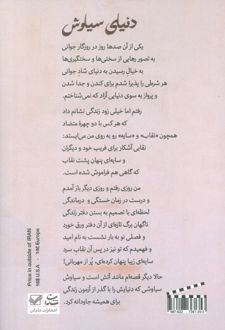 دنیای سیاوش
یکی از آن صدها روز در روزگار جوانی
به تصور رهایی از سختی‌ها و سختگیری‌ها
به خیال رسیدن به دنیای شاد جوانی
هر شرطی را پذیرا شدم برای کندن و جدا شدن
و پرواز به سوی دنیایی آزاد که نمی‌شناختم.
رفتم اما خیلی زود زندگی نشانم داد
که هر کس با دو چهرهٔ متضاد
همچون «نقاب» و «سایه» رو به روی من می‌ایستد:
نقابی آشکار برای فریب خود و دیگران
و سایه‌ای پنهان پشت نقاب
که گاهی هم فراموش شده است.
من روزی رفتم و روزی دیگر باز آمدم
و درست در زمان خستگی و درماندگی
لحظه‌ای با تصمیم به بستن دفتر زندگی
ناگهان برگ تازه‌ای از آن دفتر ورق خورد
و فصلی نو به بار نشست به نام امید
و فهمیدم که تو نیز در پس آن نقاب سرد
سایه‌ای زیبا پنهان کرده‌ای، پُر از مهربانی!
حالا دیگر قصه‌ام مانند آتش است و سیاوش
سیاوشی که دنیایش را با گذر از آزمون زندگی
برای همیشه جاودانه کرد.
Price in outside of IRAN
16$ U.S.A - 16£ Europe